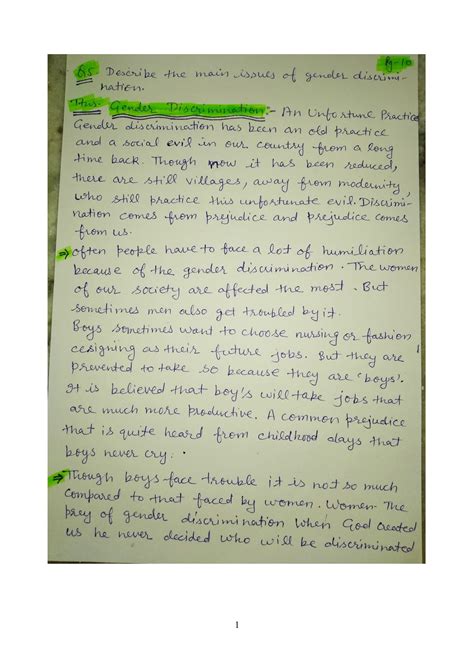 Pg-10
Q5. Describe the main issues of gender discrimi-
nation.
Ans. Gender Discrimination:- An Unfortune Practice
Gender discrimination has been an old practice
and a social evil in our country from a long
time back. Though now it has been reduced,
there are still villages, away from modernity,
who still practice this unfortunate evil. Discrimi-
nation comes from prejudice and prejudice comes
from us.
⇒ often people have to face a lot of humiliation
because of the gender discrimination. The women
of our society are affected the most. But
sometimes men also get troubled by it.
Boys sometimes want to choose nursing or fashion
cesigning as their future jobs. But they are
prevented to take so because they are 'boys'.
It is believed that boy's will take jobs that
are much more productive. A common prejudice
that is quite heard from childhood days that
boys never cry.
⇒ Though boys face trouble it is not so much
compared to that faced by women. Women The
prey of gender discrimination when God created
us he never decided who will be discriminated
1